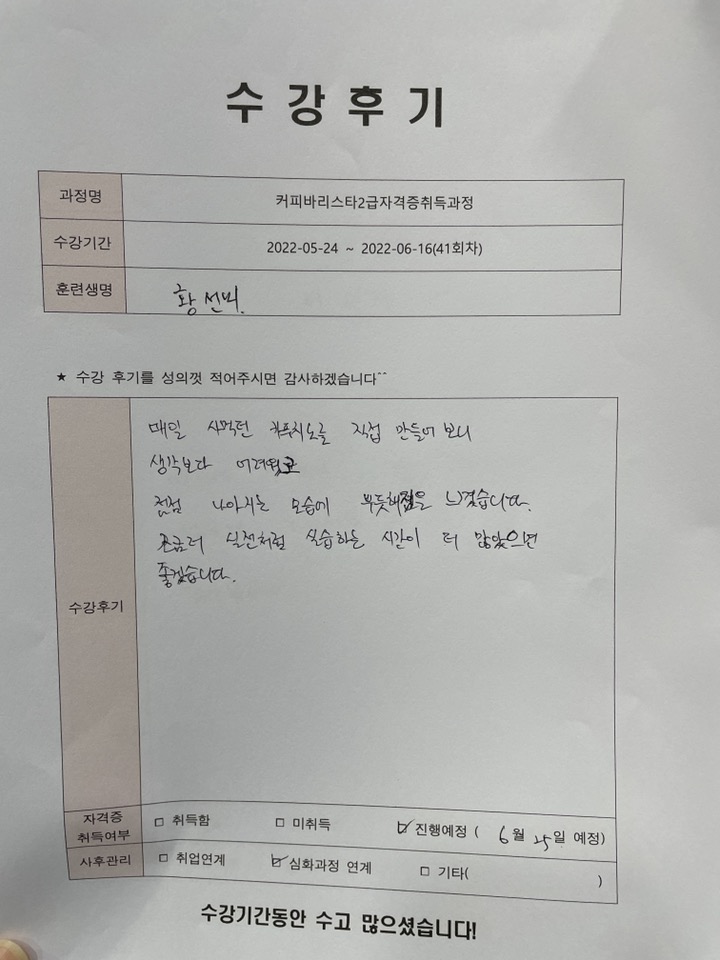 수강후기
과정명 커피바리스타2급자격증취득과정
수강기간 2022-05-24 ~ 2022-06-16(41회차)
훈련생명 황선미.
★ 수강 후기를 성의껏 적어주시면 감사하겠습니다^^
매일 사먹던 카푸치노를 직접 만들어 보니
생각보다 어려웠고
점점 나아지는 모습에 뿌듯해짐을 느꼈습니다.
조금더 실전처럼 실습하는 시간이 더 많았으면
좋겠습니다.
수강후기
자격증
취득여부 □ 취득함 □ 미취득 ☑ 진행예정 ( 6월 25일 예정)
사후관리 □ 취업연계 ☑ 심화과정 연계 □ 기타( )
수강기간동안 수고 많으셨습니다!